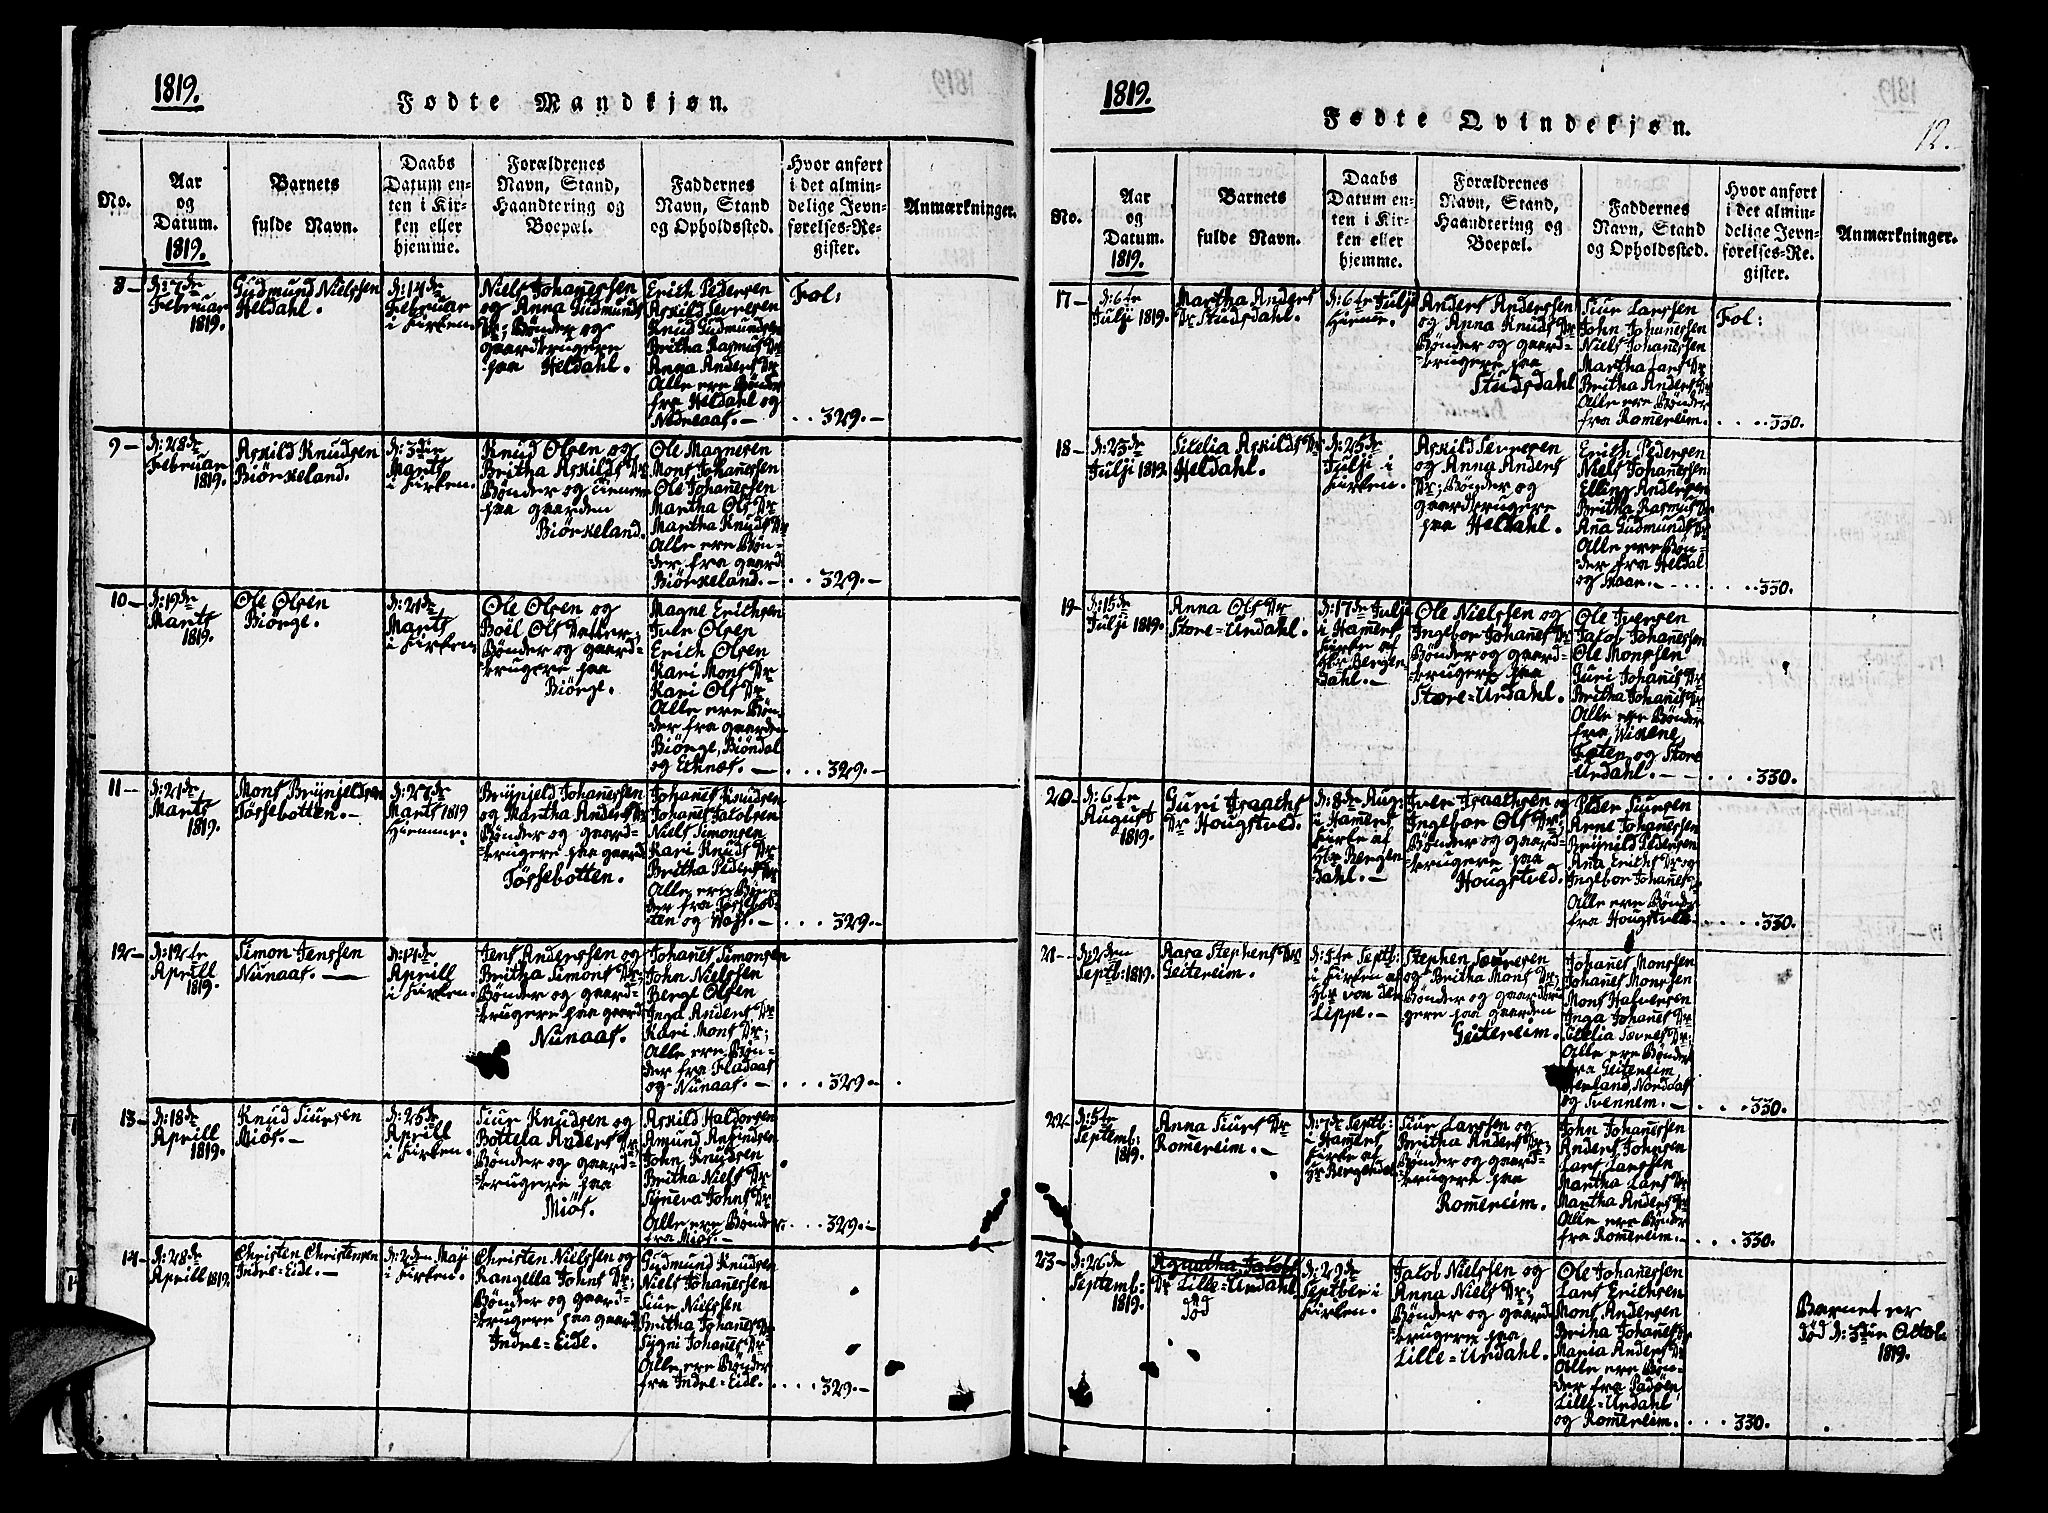 1819.
Fødte Mandkjøn.
No.
Aar
og
Datum.
1819.
Barnets
fulde Navn.
Daabs
Datum en-
ten i Kir-
ken eller
hjemme.
Forældrenes
Navn, Stand,
Haandtering og
Boepæl.
Faddernes
Navn, Stand
og Opholdssted.
Hvor anført
i det almin-
delige Jevn-
førelses-Re-
gister.
Anmærkninger.
8-
d: 7de
Februar
1819.
Gudmund Nielssen
Heldahl.
d: 14de
Februar
i Kirken.
Niels Johanessen
og Anna Gudmunds
Dr; Bønder og
gaardbrugere
paa Heldahl.
Erich Pedersen
Askild Sevresen
Knud Gudmundsen
Britha Rasmus Dr
Anna Anders Dr
Alle ere Bønder
fra Heldahl og
Nedreaas. -
Fol:
. . 329. -
9-
d: 28de
Februar
1819.
Askild Knudsen
Biørkeland.
d: 3die
Marts
i Kirken.
Knud Olsen og
Britha Askilds Dr
Bønder og tienere
paa gaarden
Biørkeland.
Ole Magnesen
Mons Johanessen
Ole Johanessen
Martha Ols Dr
Martha Knuds Dr
Alle ere Bøn-
der fra gaard
Biørkeland. -
. . 329. -
10-
d: 19de
Marts
1819.
Ole Olsen
Biørge.
d: 21de
Marts
i Kirken.
Ole Olsen og
Boël Ols Datter;
Bønder og gaard-
-brugere paa
Biørge.
Magne Erichsen
Iver Olsen
Erich Olsen
Kari Mons Dr
Kari Ols Dr
Alle ere Bøn-
der fra gaarden
Biørge, Biøndal
og Echnæs. -
. . . 329. -
11-
d: 21de
Marts
1819.
Mons Brynjeldsen
Tøssebotten. -
d: 27de
Marts 1819
Hiemme.
Brynjeld Johanessen
og Martha Anders Dr
Bønder og gaard-
-brugere paa gaard
Tøssebotten.
Johanes Knudsen
Johanes Jacobsen
Niels Simonsen
Kari Knuds Dr
Britha Peders Dr
Alle ere Bøn-
der fra Tøssebot-
-ten og Wass. -
. . . . 329. -
12-
d: 12te
Aprill
1819.
Simon Jenssen
Nunaas. -
d: 14de
Aprill
i Kirken.
Jens Anderssen og
Britha Simons Dr;
Bønder og gaard-
-brugere paa gaard
Nunaas.
Johanes Simonsen
John Nielssen
Berge Olsen
Inga Anders Dr
Kari Mons Dr;
Alle ere Bøn-
der fra Fladaas
og Nunaas. -
. . . . 329. -
13-
d: 18de
Aprill
1819.
Knud Siursen
Miøs. -
d: 25de
Aprill
i Kirken.
Siur Knudsen og
Bottela Anders Dr;
Bønder og gaard-
-brugere paa
Miøs.
Askild Haldorsen
Amund Anfindsen
John Knudsen
Britha Niels Dr
Syneva Johns Dr
Alle ere Bønder
fra Miøs. -
. . . 329. -
14-
d: 28de
Aprill 1819.
Christen Christensen
Indre-Eide. -
d: 2den Maji
i Kirken.
Christen Nielssen og
Rangella Johns Dr;
Bønder og gaard-
-brugere paa gaard
Indre-Eide.
Gudmund Knudsen
Niels Johanessen
Siur Nielssen
Britha Johanes Dr
Sygni Johanes Dr
Alle ere Bønder
fra Indre-Eide.
. . . . 329. -
1819.
Fødte Qvindekjøn.
12.
No.
Aar
og
Datum.
1819.
Barnets
fulde Navn.
Daabs
Datum en-
ten i Kir-
ken eller
hjemme.
Forældrenes
Navn, Stand,
Haandtering og
Boepæl.
Faddernes
Navn, Stand
og Opholdssted.
Hvor anført
i det almin-
delige Jevn-
førelses-Re-
gister.
Anmærkninger.
17-
d: 6te
Julji 1819.
Martha Anders
Dr Studsdahl.
d: 6te Julji
Hieme.
Anders Anderssen
og Anna Knuds Dr
Bønder og gaard-
-brugere paa
Studsdahl
Siur Larssen
John Johanessen
Niels Johanessen
Martha Lars Dr
Britha Anders Dr
Alle ere Bønder
fra Romereim.
Fol:
. . . . 330.
18-
d: 23de
Julji 1819.
Sitelia Askilds Dr
Heldahl.
d: 25de
Julji i
Kirken.
Askild Sevresen
og Anna Anders
Dr; Bønder og
gaardbrugere
paa Heldahl.
Erich Pedersen
Niels Johanessen
Elling Andersen
Britha Rasmus Dr
Ana Gudmunds Dr
Alle ere Bøn-
der fra Heldal
og
. . . . 330.
19-
d: 15de
Julji 1819.
Anna Ols Dr
Store-Urdahl.
d: 17de Julji
i Hamers
Kirke af
Hr Bergen
dahl. -
Ole Nielssen og
Ingebor Johanes Dr
Bønder og gaard-
-brugere paa
Store-Urdahl.
Ole Iversen
Jacob Johanessen
Ole Monssen
Guri Johanes Dr
Britha Johanes Dr
Alle ere Bønder
fra Wikene,
Toften og Store
-Urdahl. -
. . . . 330.
20-
d: 6te
August
1819.
Guri Isaachs
Dr Hougstved.
d: 8de Aug:
i Hamers
Kirke af
Hr Bergen
dahl. -
Iver Isaachsen og
Ingebor Ols Dr;
Bønder og gaard-
-brugere paa
Hougstved.
Peder Siursen
Arne Johanessen
Brynild Pedersen
Ana Erichs Dr og
Ingebor Johanes Dr
Alle ere Bønder
fra Hougstved
. . . . 330.
21-
d: 2den
Septb: 1819.
Aasa Stephens Dr
Geitereim.
d: 5te Septb:
i Kirken af
Hr von der
Lippe. -
Stephen Sæversen
og Britha Mons Dr;
Bønder og gaardbru-
gere paa gaarden
Geitereim.
Johanes Monssen
Johanes Monssen
Mons Halversen
Inga Johanes Dr
Sitelia Sævers Dr;
Alle ere Bønder
fra Geitereim,
Norddas
og Svennem. -
. . . 330.
22-
d: 5te
Septemb:
1819.
Anna Siurs Dr
Romereim. -
d: 7de Septb:
i Hamers
Kirke af
Hr Bergendal
Siur Larssen og
Britha Anders Dr;
Bønder og gaard-
-brugere paa
Romereim.
John Johanessen
Anders Johnsen
Lars Larssen
Martha Lars Dr
Martha Anders Dr
Alle ere Bønder
fra Romereim. -
. . . 330.
23-
d: 26de
Septemb:
1819.
Agaatha Jacobs
Dr Lille-Urdahl.
død
d: 29de
Septbr i
Kirken.
Jacob Nielssen og
Anna Niels Dr;
Bønder og gaard
-brugere paa
Lille-Urdahl.
Ole Johanessen
Lars Erichsen
Mons Andersen
Britha Johanes Dr
Maria Anders Dr
Alle ere Bøn-
der fra Padøen
Lille-Urdahl
og Romereim.
. . . . 330.
Barnet er
død d: 3die Octob
1819.